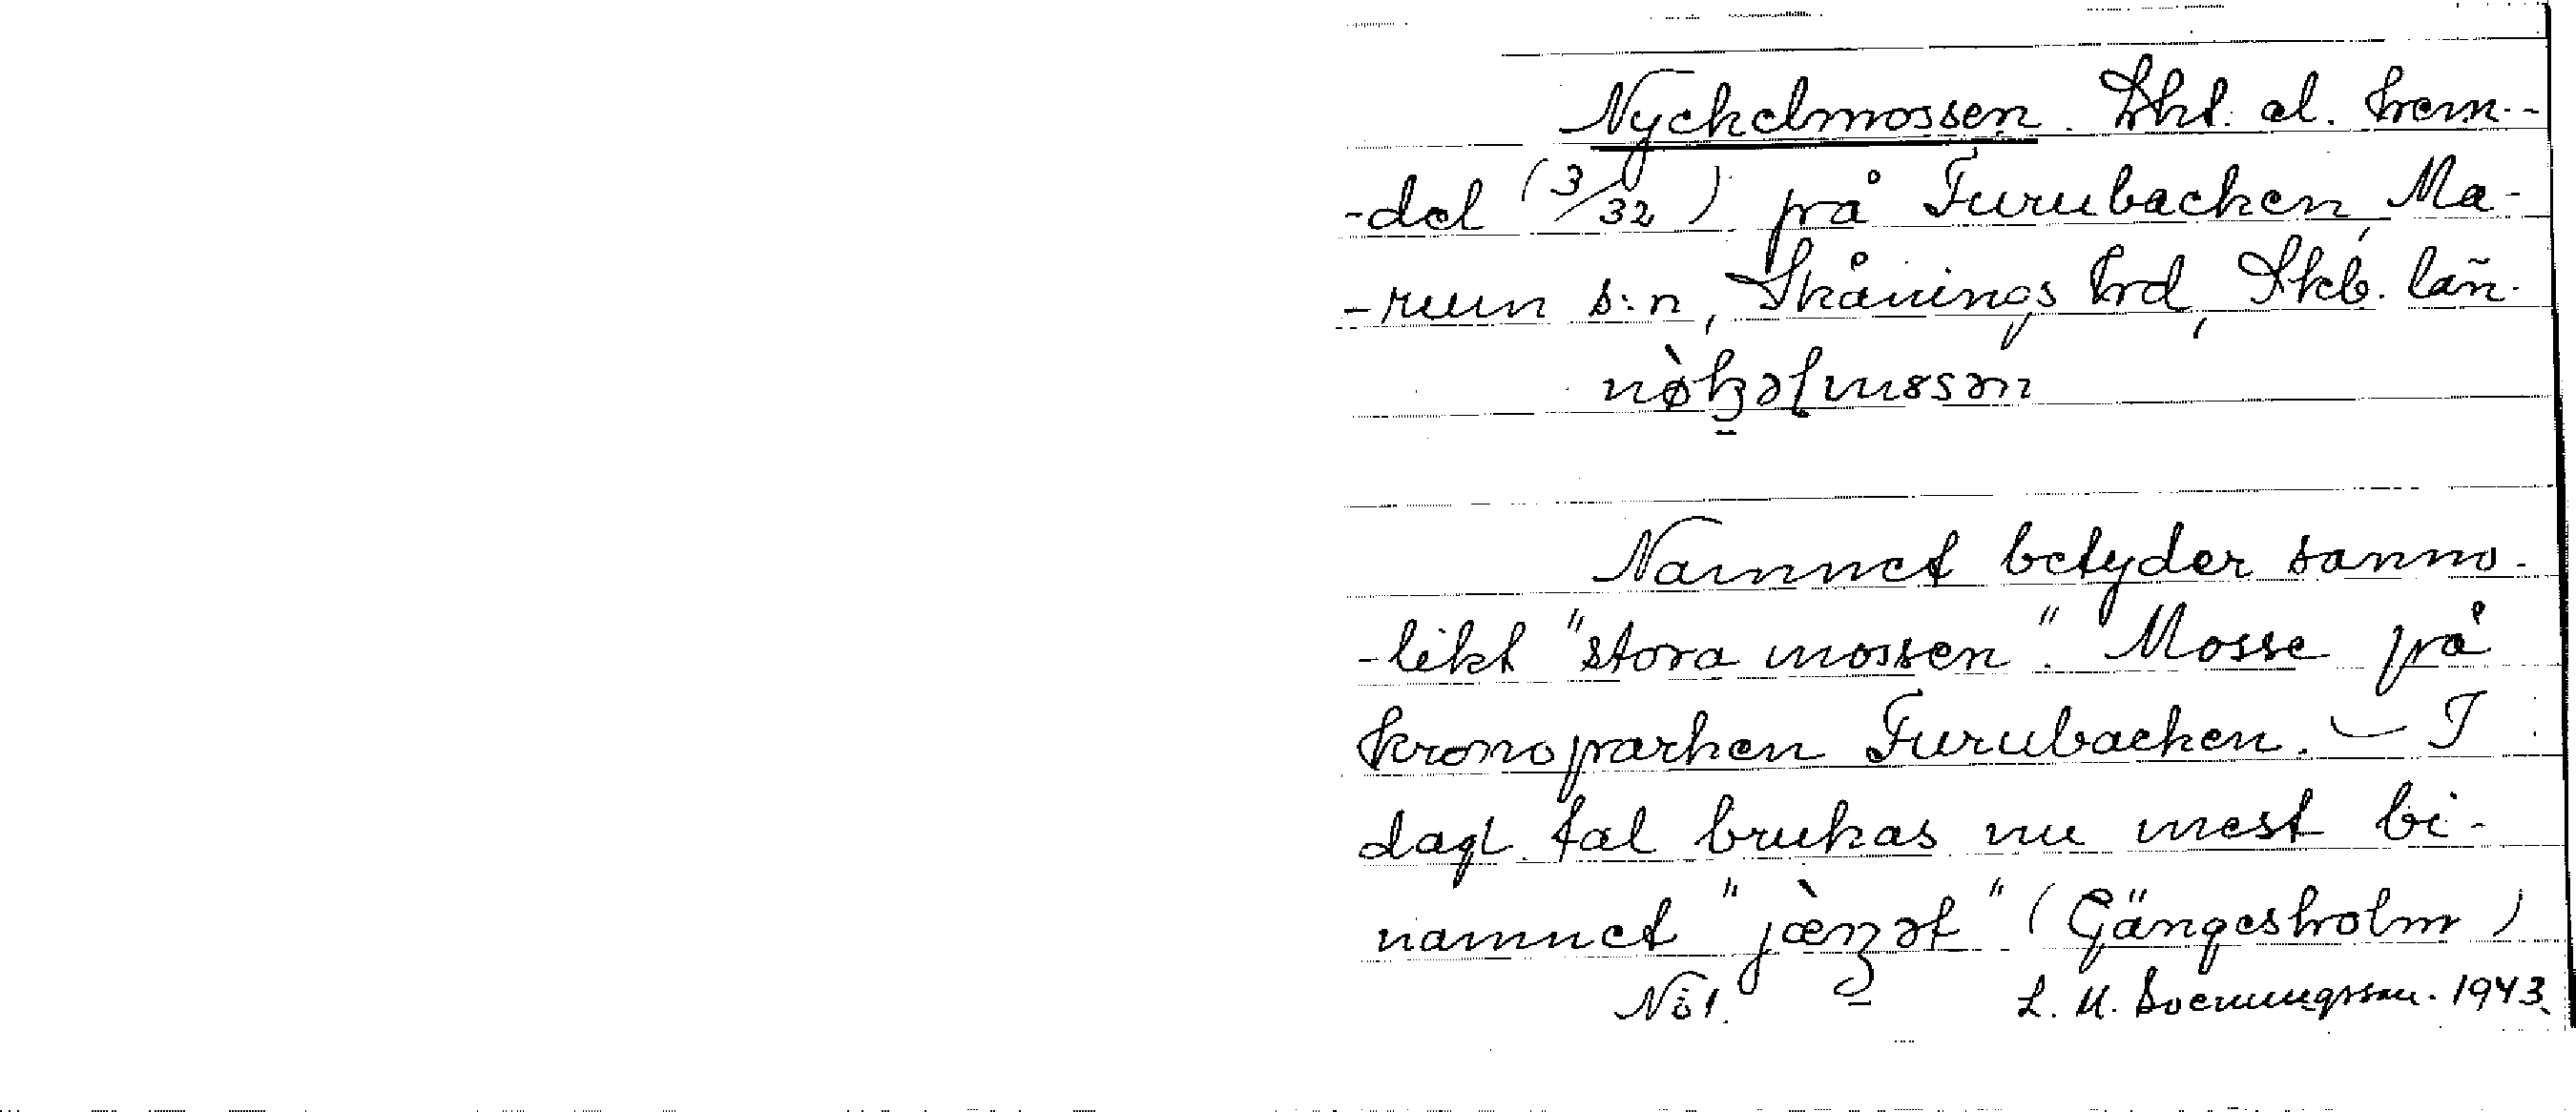 Nyckelmossen. Skt. el. hem-
-del (3/32) på Furubacken, Ma-
-rum s:n, Skånings hrd, Skb. län.
nø̀ꞣəɭmɞsən
Namnet betyder sanno-
-likt "stora mossen". Mosse på
kronoparken Furubacken. — I
dagl. tal brukas nu mest bi-
namnet "jæ̀ŋət" (Gängesholm)
No 1. L. M. 1943.